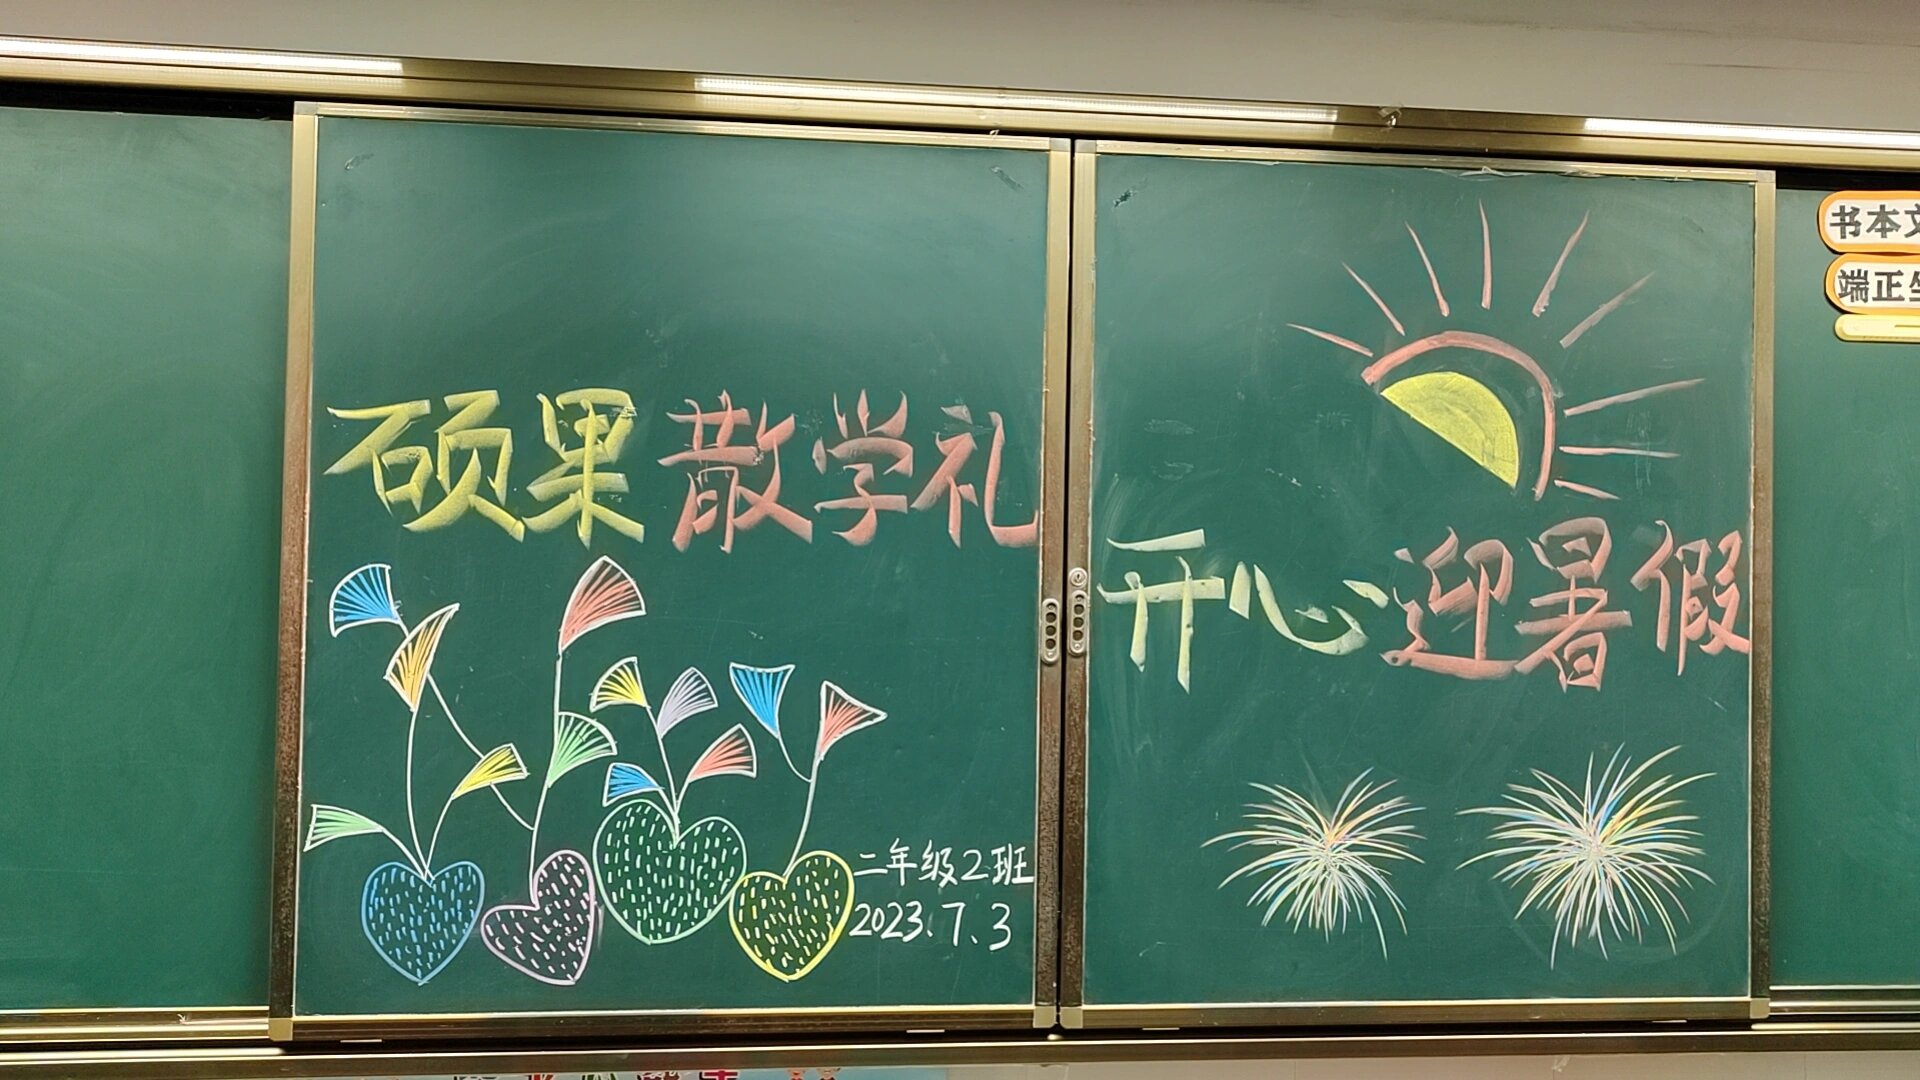 硕果散学礼
二年级2班
2023.7.3
开心迎暑假
书本
端正